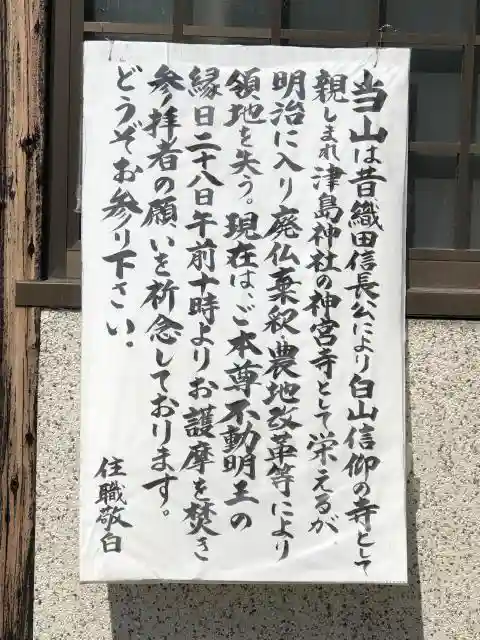 当山は昔織田信長公により白山信仰の寺として
親しまれ津島神社の神宮寺として栄えるが、
明治に入り廃仏棄釈・農地改革等により
領地を失う。現在は、ご本尊不動明王の
縁日二十八日午前十時よりお護摩を焚き
参拝者の願いを祈念しております。
どうぞお参り下さい。
住職敬白